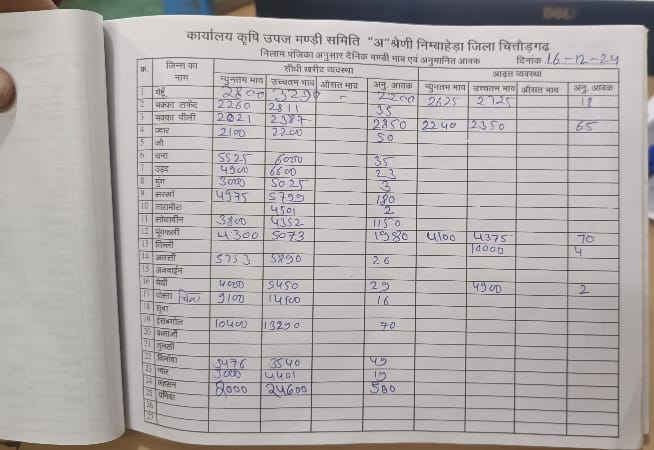 DELL
कार्यालय कृषि उपज मण्डी समिति "अ" श्रेणी निम्बाहेड़ा जिला चित्तौड़गढ़
निलाम पंजिका अनुसार दैनिक मण्डी भाव एवं अनुमानित आवक दिनांक 16-12-24
क्र. जिन्स का नाम सीधी खरीद व्यवस्था आढ़त व्यवस्था
न्युनतम भाव उच्चतम भाव औसत भाव अनु. आवक न्युनतम भाव उच्चतम भाव औसत भाव अनु. आवक
1 गेहूँ 3290 - 2625 2725 18
2 मक्का सफेद 2260 2811 35
3 मक्का पीली 2021 2387 2850 2240 2350 65
4 ज्वार 2100 2200 50
5 जौ
6 चना 5525 6000 35
7 उड़द 4900 6600 23
8 मुंग 3000 5025 3
9 सरसों 4975 5799 180
10 तारामीरा 4501 2
11 सोयाबीन 3800 4352 1150
12 मूंगफली 4300 5073 1980 4100 4375 70
13 तिल्ली 10000 4
14 अलसी 5753 5890 26
15 अजवाईन
16 मेथी 4000 5450 29 4900 2
17 पोस्ता 9100 14100 16
18 सुवा
19 ईसबगोल 10400 13290 70
20 कलोंजी
21 तुलसी
22 3476 3540 49
23 ग्वार 3000 4401 19
24 लहसन 2000 24600 500
25 धनिया
26
27